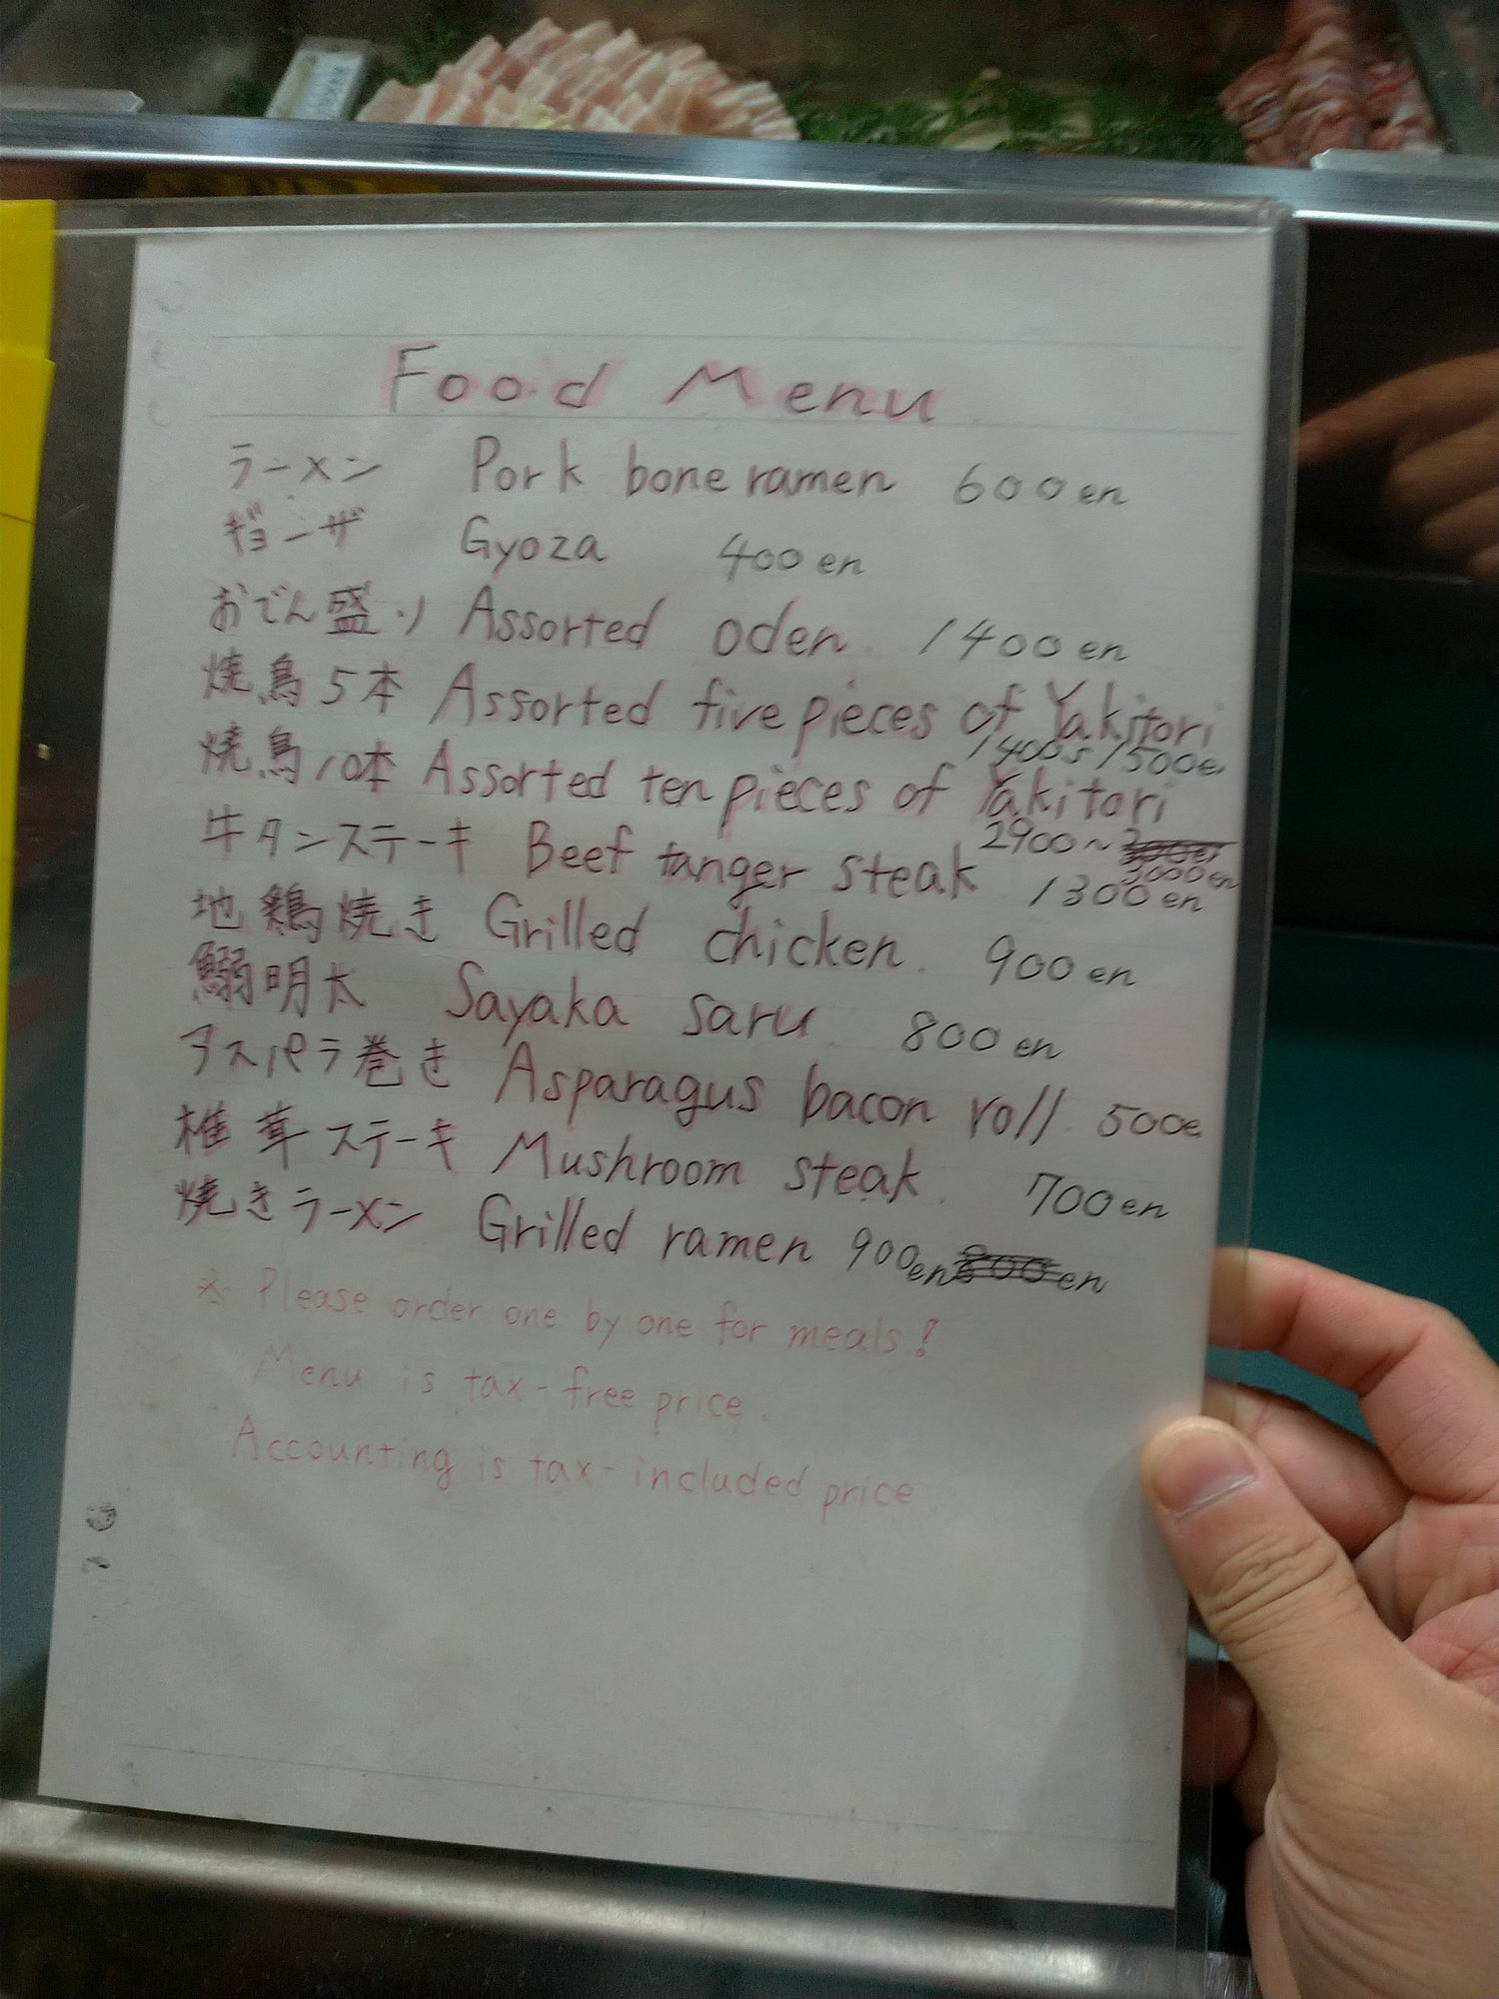 Food Menu
ラーメン Pork bone ramen 600en
ギョーザ Gyoza 400en
おでん盛り Assorted oden. 1400en
焼鳥5本 Assorted five pieces of Yakitori
1400~1500e
焼鳥10本 Assorted ten pieces of Yakitori
2900~
3000en
牛タンステーキ Beef tanger steak 1300en
地鶏焼き Grilled chicken. 900en
鰯明太 Sayaka saru. 800en
アスパラ巻き Asparagus bacon roll. 500e
椎茸ステーキ Mushroom steak. 700en
焼きラーメン Grilled ramen 900en 800en
※ Please order one by one for meals!
Menu is tax-free price.
Accounting is tax-included price